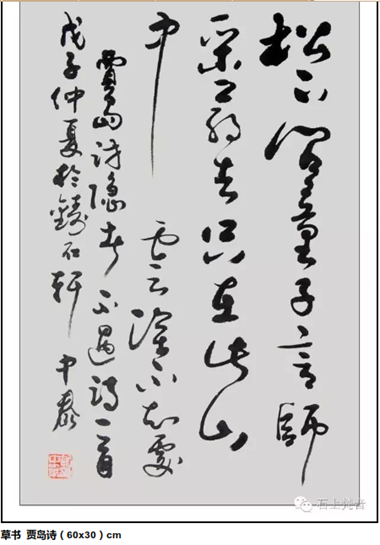 松下問童子言師
采药去只在此山
中
雲深不知處
賈島诗隐者不遇詩一首
戊子仲夏於鑄石軒 中泰
草书 贾岛诗（60x30）cm